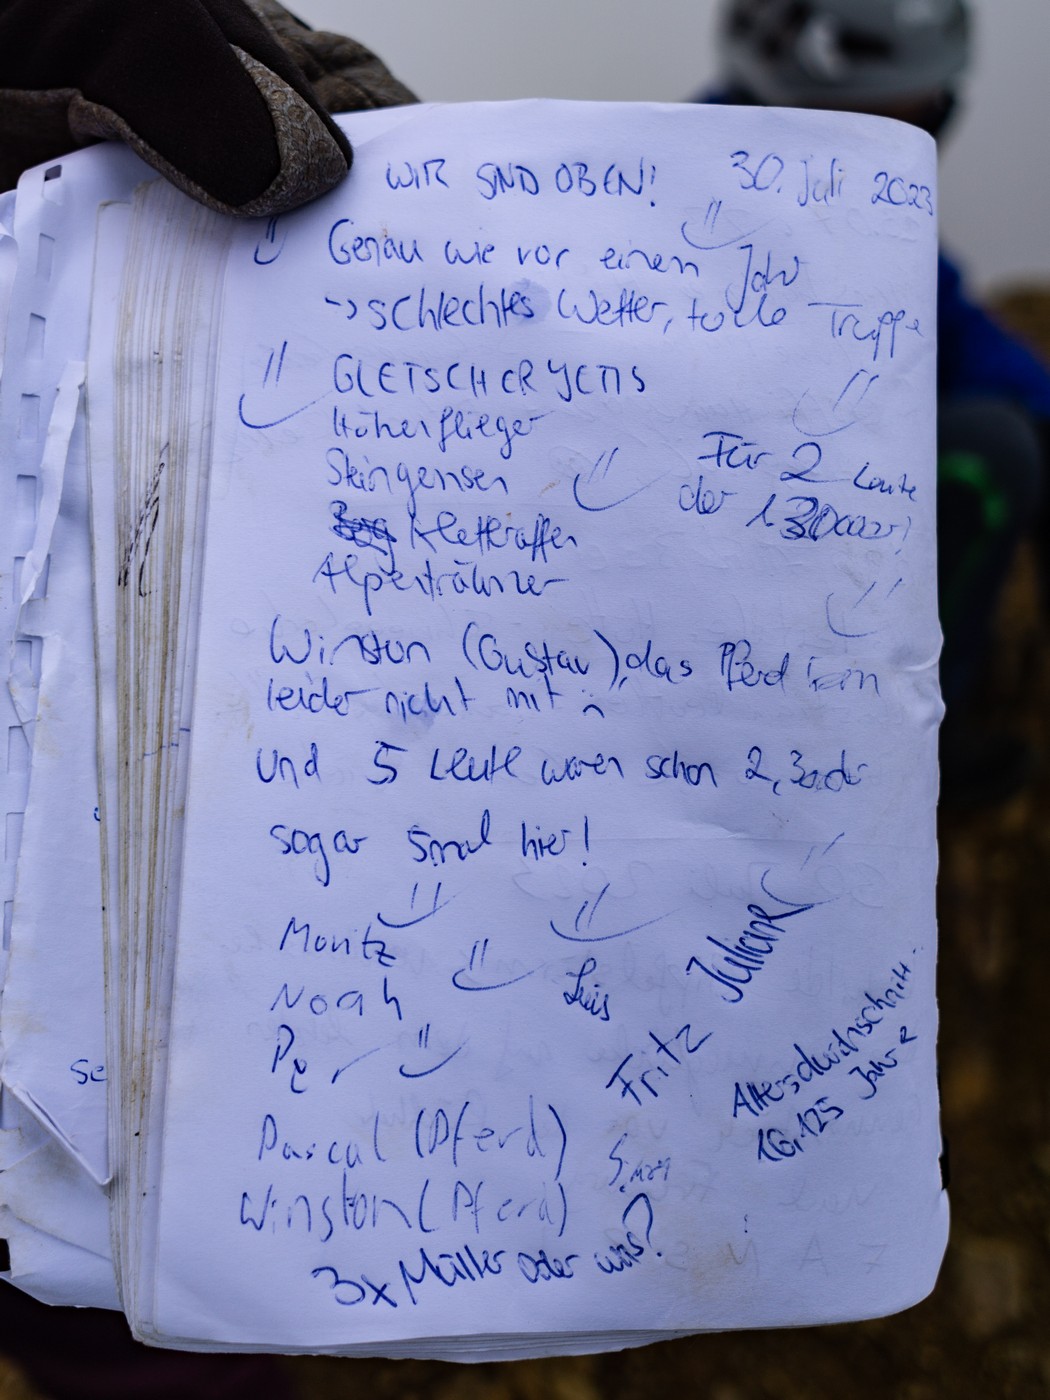 WIR SIND OBEN! 30. Juli 2023
Genau wie vor einem Jahr
→ schlechtes Wetter, tolle Truppe
GLETSCHERYETIS
Höhenflieger
Steingemsen
Kletteraffen
Alpenträumer
Für 2 Leute
der 1. 3000er!
Winston (Gustav), das Pferd kam
leider nicht mit
und 5 Leute waren schon 2, 3 oder
sogar 5mal hier!
Moritz
Noah
Luis
Juliane
Fritz
Altersdurchschnitt
16,125 Jahre
Pascal (Pferd)
Winston (Pferd)
3x Müller oder was?
se